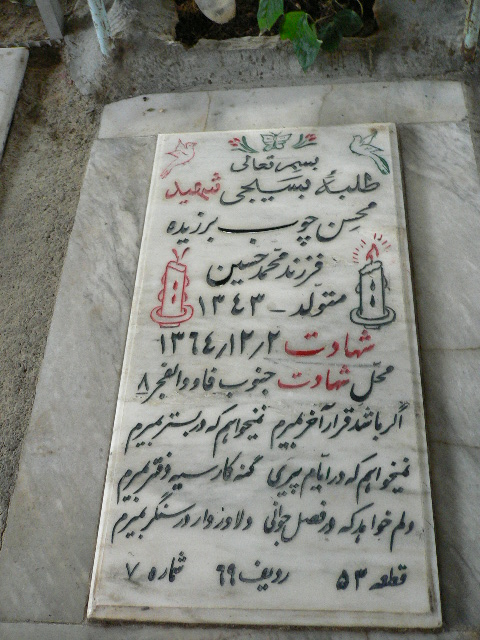 بسمه تعالی
طلبهٔ بسیجی شهید
محسن چوب برزیده
فرزند محمد حسین
متولد - ۱۳۴۳
شهادت ۱۳۶۴/۱۲/۲
محل شهادت جنوب فاو والفجر ۸
اگر باشد قرار آخر بمیرم نمیخواهم که در بستر بمیرم
نمیخواهم که در ایام پیری گنه کار سیه دفتر بمیرم
دلم خواهد که در فصل جوانی دلاوروار در سنگر بمیرم
قطعه ۵۳ ردیف ۶۹ شماره ۷